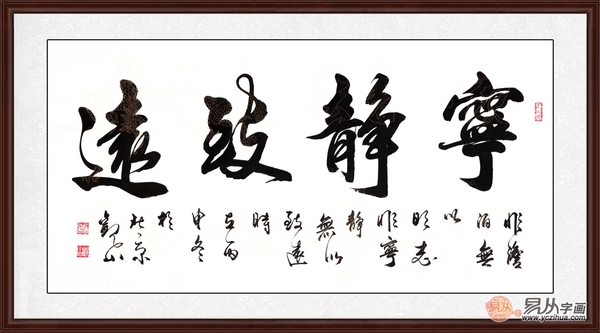 寧靜致遠
非澹
泊無
以
明志
非寧
靜
無以
致遠
時
在丙
申冬
於
北京
易从字画
www.yczihua.com